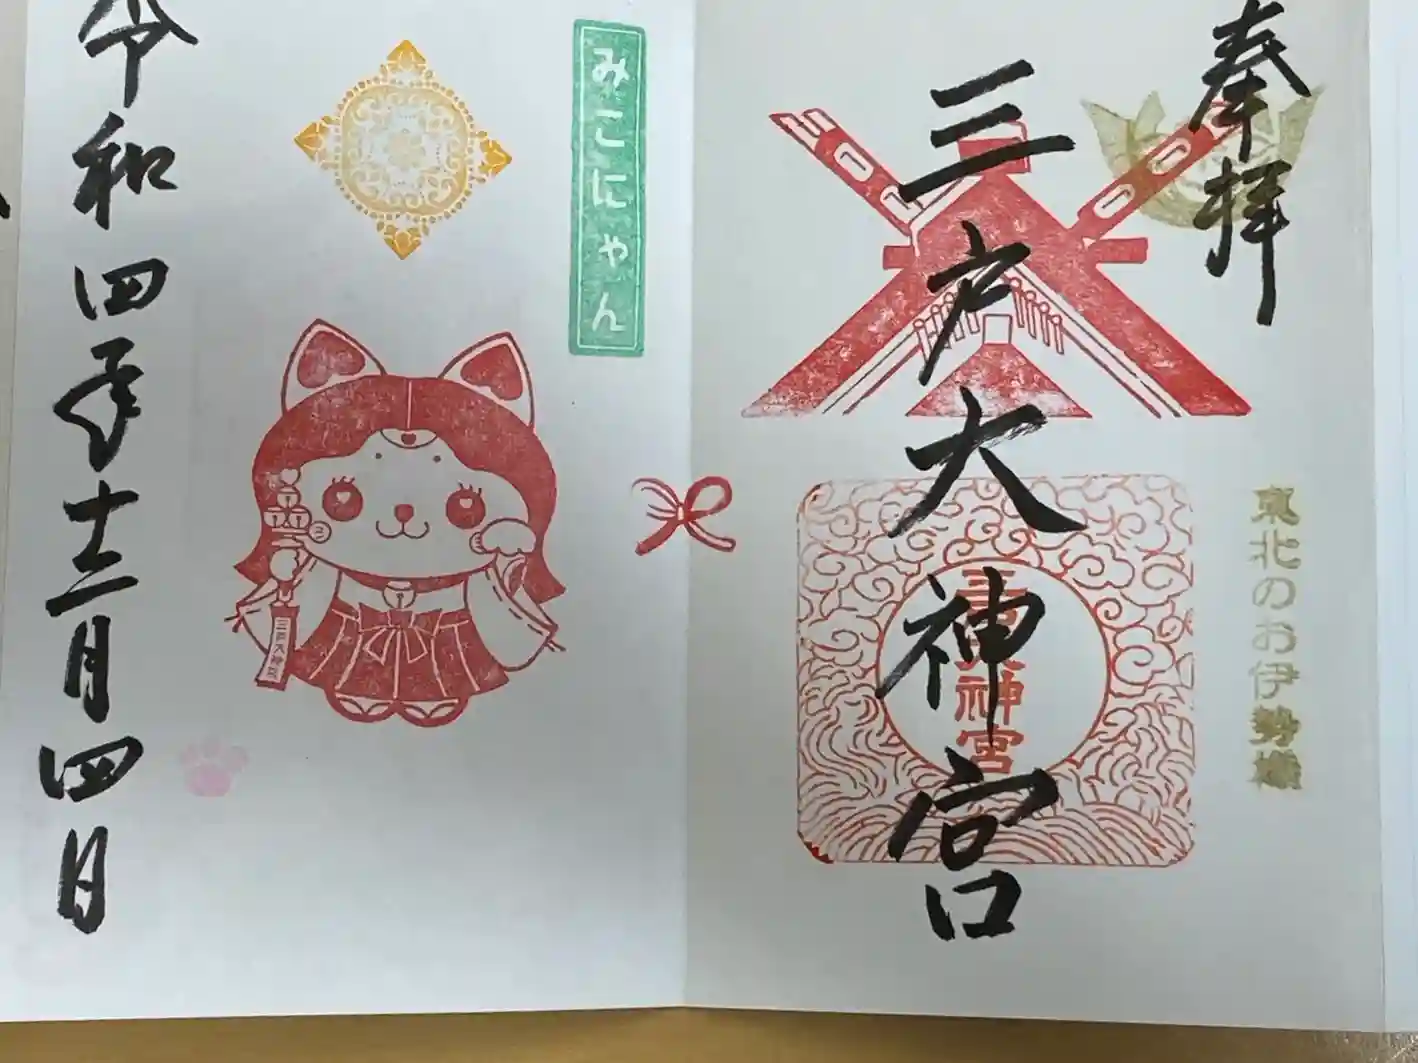 奉拝
東北のお伊勢様
三戸大神宮
三戸大神宮
みこにゃん
三戸大神宮
令和四年十二月四日